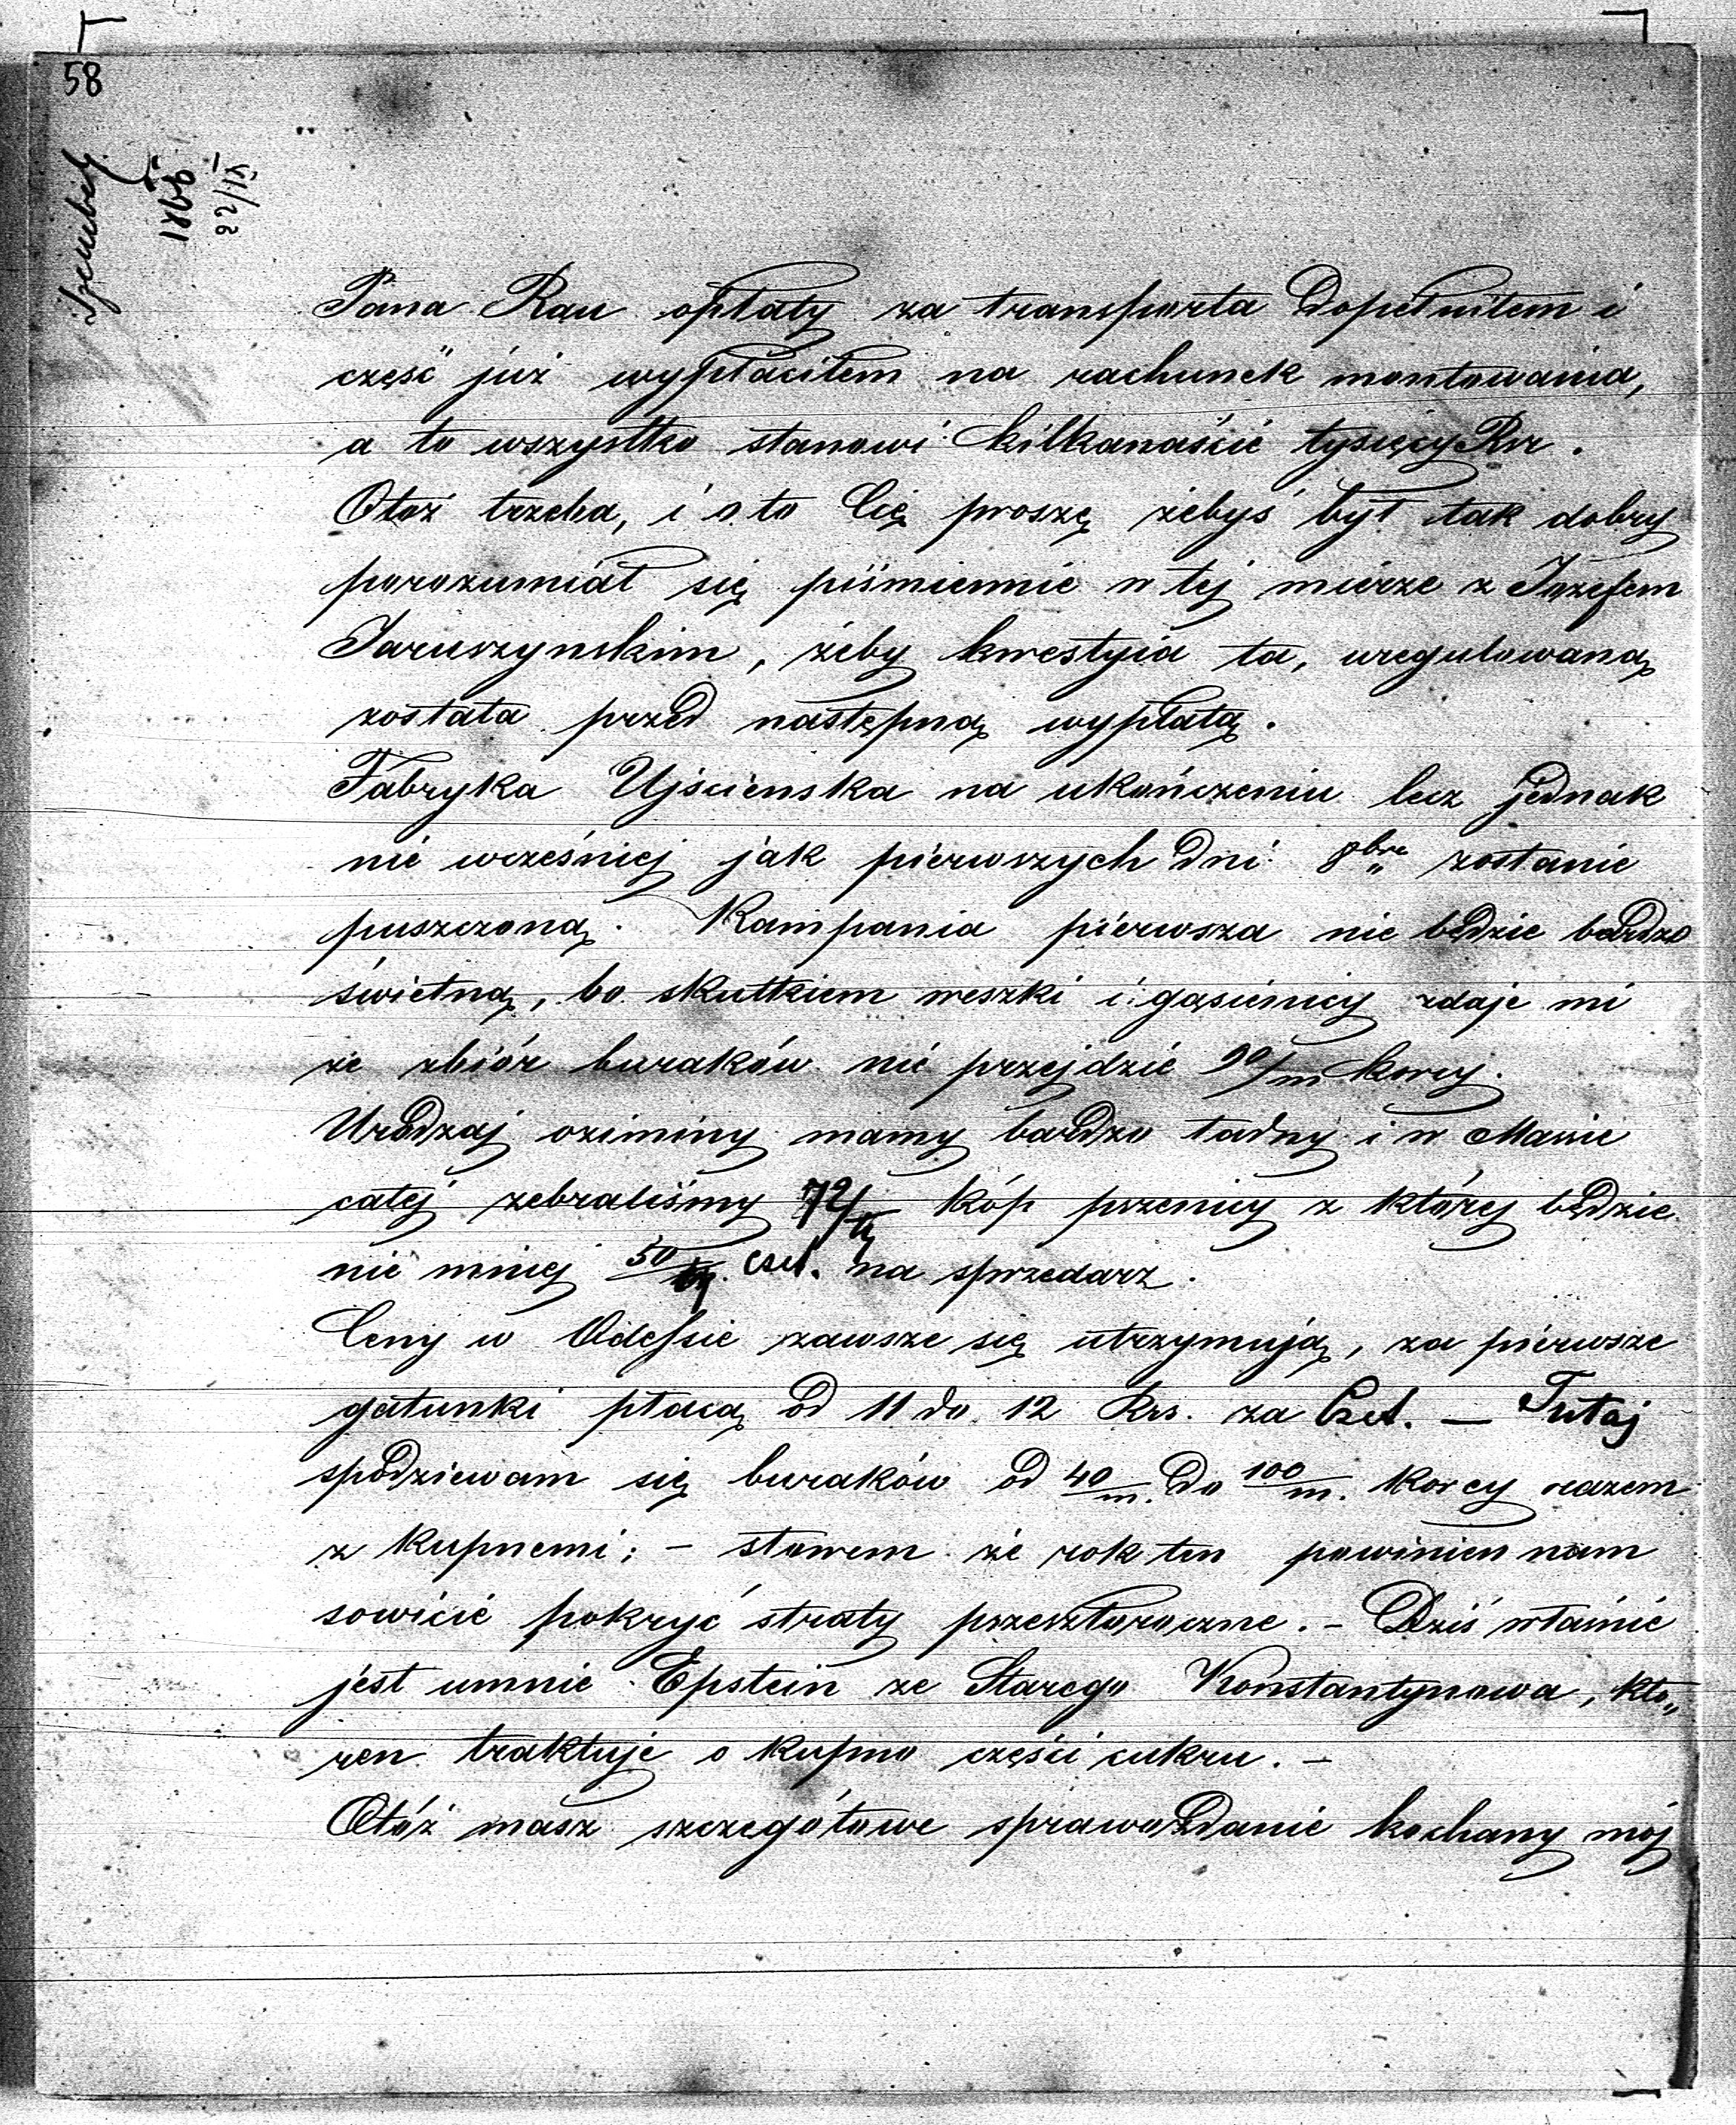 58
1866
22/VI
Pana Rau opłaty za transporta dopełniłem i
część już wypłaciłem na rachunek montowania,
a to wszystko stanowi kilkanaście tysięcy Rsr.
Otoż trzeba, i o to Cię proszę żebyś był tak dobry
porozumiał się piśmiennie w tej mierze z Józefem
Jaruszynskim, żeby kwestyia ta, uregulowaną
została przed następną wypłatą.
Fabryka Ujścienska na ukończeniu lecz jednak
nie wcześniej jak pierwszych dni 8bra zostanie
puszczoną. Kampania pierwsza nie będzie bardzo
świetną, bo skutkiem meszki i gąsienicy zdaje mi
że zbiór buraków nie przejdzie 90/m korcy.
Urodzaj oziminy mamy bardzo ładny i w Massie
całej zebraliśmy 72/ty kóp pszenicy z której będzie
nie mniej 50/ty. czet. na sprzedarz.
Ceny w Odessie zawsze się utrzymują, za pierwsze
gatunki płacą od 11 do 12 Rrs. za Czet. — Tutaj
spodziewam się buraków od 40/m. do 100/m. korcy razem
z kupnemi; – słowem że rok ten powinien nam
sowicie pokryć straty przeszłoroczne. – Dziś właśnie
jest umnie Epstein ze Starego Konstantynowa, któ„
ren traktuje o kupno części cukru. –
Otóż masz szczegółowe sprawozdanie kochany mój